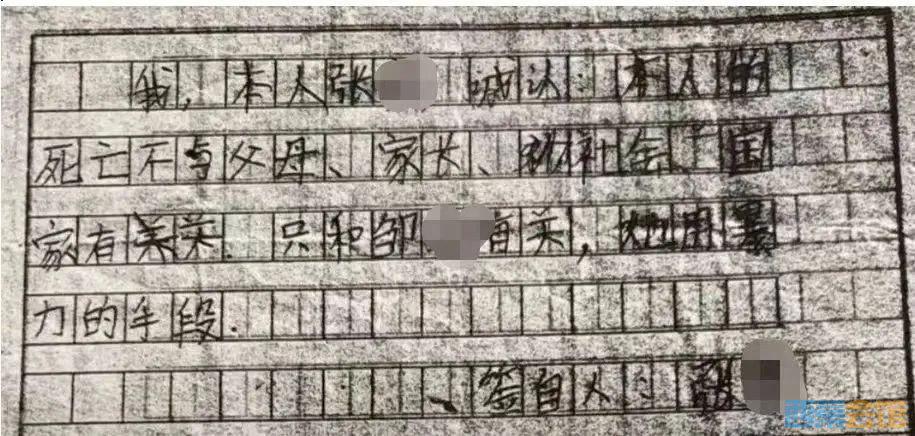 我，本人张 诚认：本人的
死亡不与父母、家长、和社会、国
家有关关．只和邹 有关，她用暴
力的手段．
、签自人：张